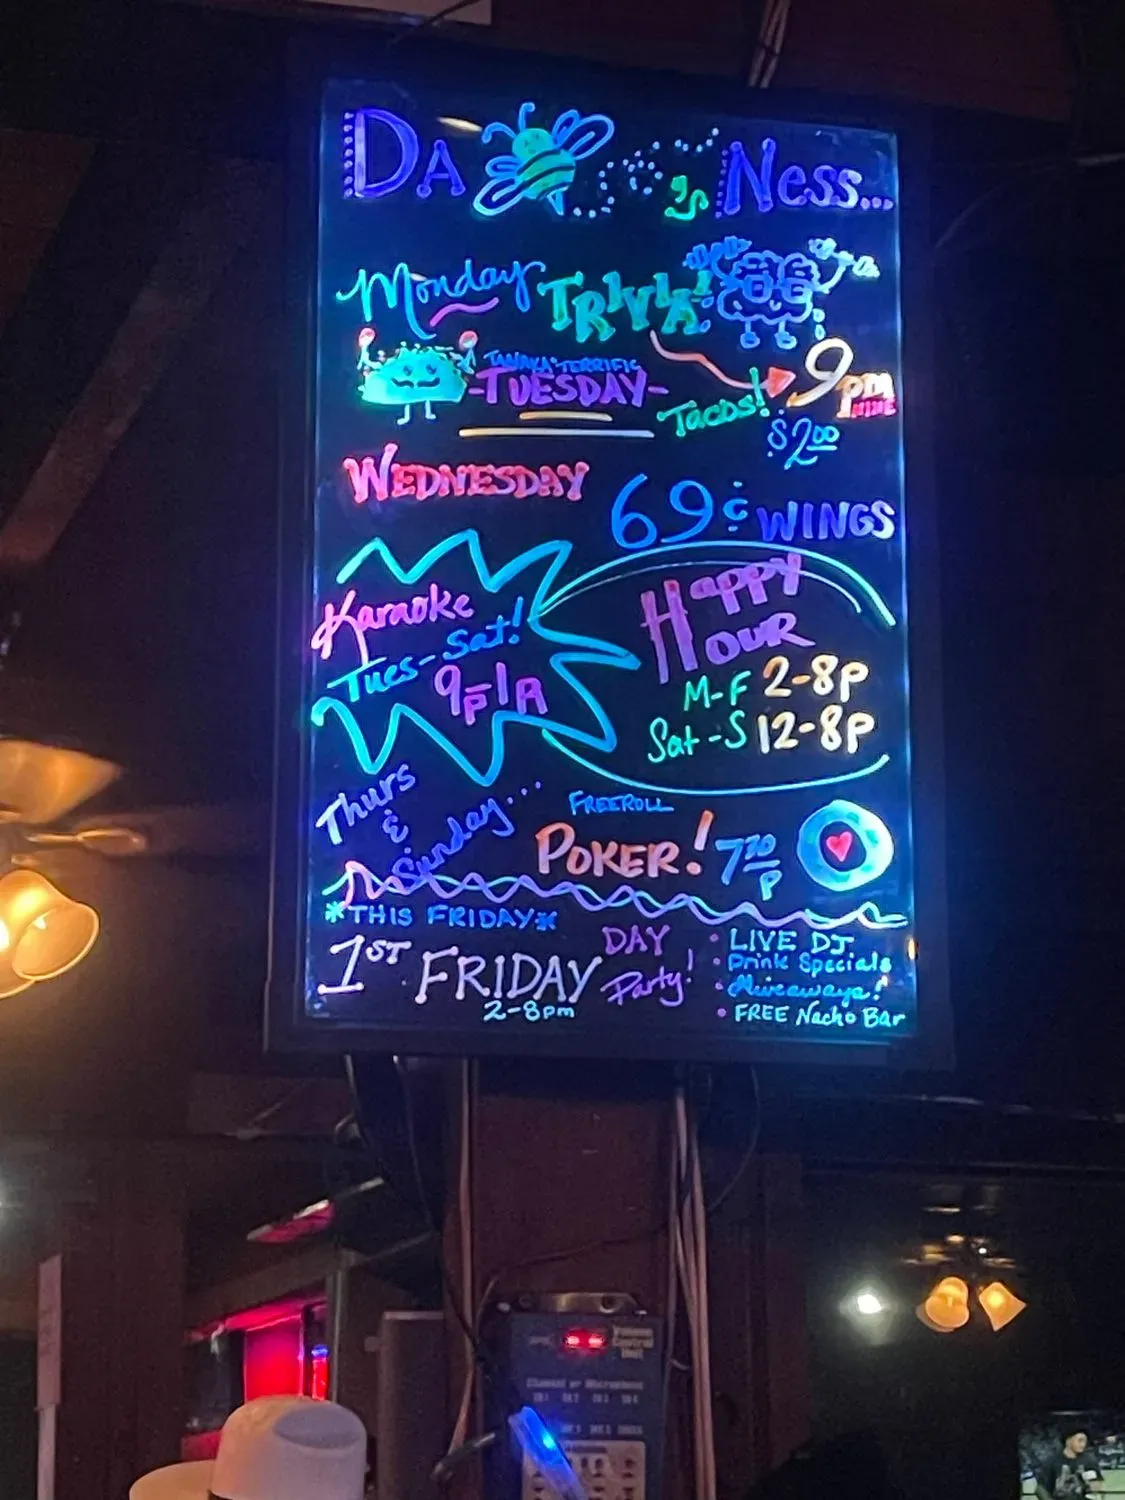 DA 's NESS...
Monday TRIVIA!
9pm
NINE
TANAKA'TERRIFIC
-TUESDAY-
TACOS!
$2.00
WEDNESDAY
69¢ WINGS
Karaoke
Tues-Sat!
9P-1A
HAPPY
HOUR
M-F 2-8P
Sat-S 12-8P
Thurs
&
Sunday...
FREEROLL
POKER! 730P
*THIS FRIDAY*
1ST FRIDAY
2-8pm
DAY
Party!
• LIVE DJ
• Drink Specials
• Giveaways!
• FREE Nacho Bar
Control
Unit